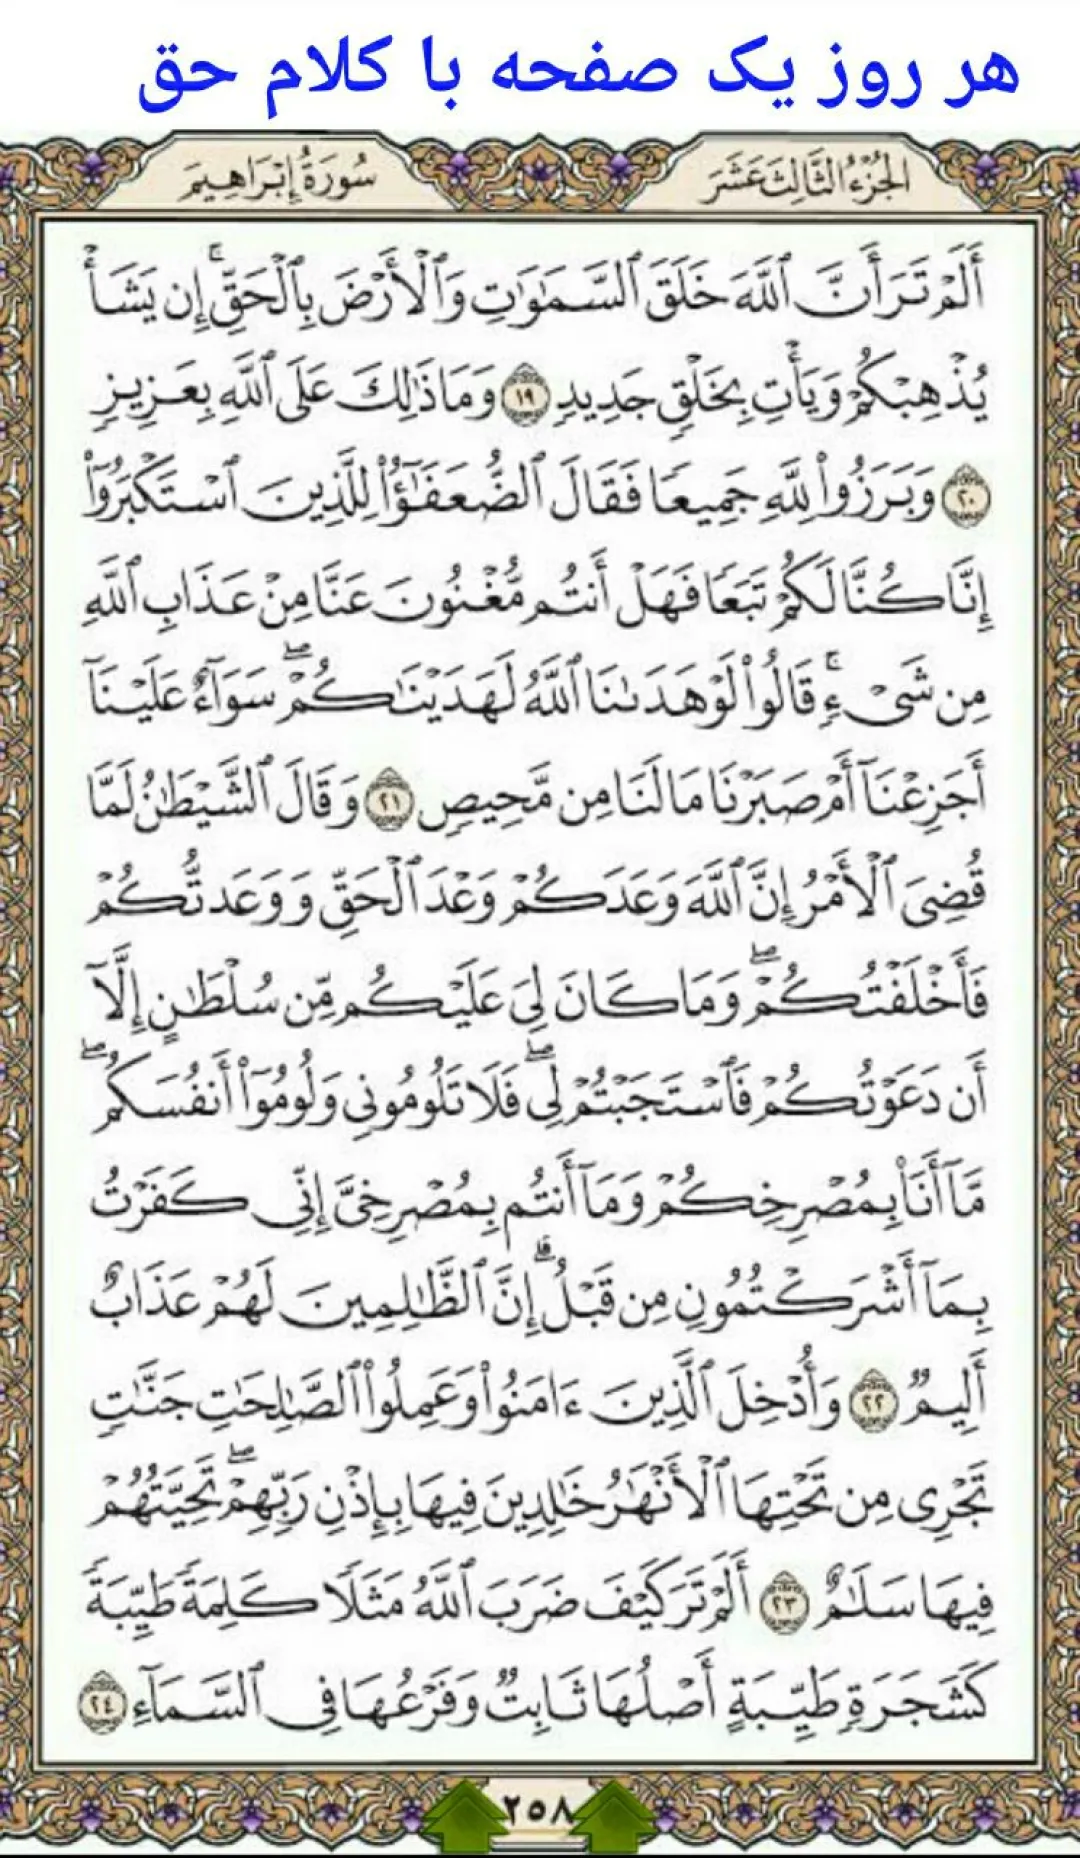 هر روز یک صفحه با کلام حق
الجُزْءُ الثَّالِثَ عَشَرَ
سُورَةُ إِبْرَاهِيمَ
أَلَمْ تَرَ أَنَّ ٱللَّهَ خَلَقَ ٱلسَّمَٰوَٰتِ وَٱلْأَرْضَ بِٱلْحَقِّۚ إِن يَشَأْ
يُذْهِبْكُمْ وَيَأْتِ بِخَلْقٍ جَدِيدٍ ١٩ وَمَا ذَٰلِكَ عَلَى ٱللَّهِ بِعَزِيزٍ
٢٠ وَبَرَزُوا۟ لِلَّهِ جَمِيعًا فَقَالَ ٱلضُّعَفَٰٓؤُا۟ لِلَّذِينَ ٱسْتَكْبَرُوٓا۟
إِنَّا كُنَّا لَكُمْ تَبَعًا فَهَلْ أَنتُم مُّغْنُونَ عَنَّا مِنْ عَذَابِ ٱللَّهِ
مِن شَىْءٍۚ قَالُوا۟ لَوْ هَدَىٰنَا ٱللَّهُ لَهَدَيْنَٰكُمْۖ سَوَآءٌ عَلَيْنَآ
أَجَزِعْنَآ أَمْ صَبَرْنَا مَا لَنَا مِن مَّحِيصٍ ٢١ وَقَالَ ٱلشَّيْطَٰنُ لَمَّا
قُضِىَ ٱلْأَمْرُ إِنَّ ٱللَّهَ وَعَدَكُمْ وَعْدَ ٱلْحَقِّ وَوَعَدتُّكُمْ
فَأَخْلَفْتُكُمْۖ وَمَا كَانَ لِىَ عَلَيْكُم مِّن سُلْطَٰنٍ إِلَّآ
أَن دَعَوْتُكُمْ فَٱسْتَجَبْتُمْ لِىۖ فَلَا تَلُومُونِى وَلُومُوٓا۟ أَنفُسَكُمۖ
مَّآ أَنَا۠ بِمُصْرِخِكُمْ وَمَآ أَنتُم بِمُصْرِخِىَّ إِنِّى كَفَرْتُ
بِمَآ أَشْرَكْتُمُونِ مِن قَبْلُۗ إِنَّ ٱلظَّٰلِمِينَ لَهُمْ عَذَابٌ
أَلِيمٌ ٢٢ وَأُدْخِلَ ٱلَّذِينَ ءَامَنُوا۟ وَعَمِلُوا۟ ٱلصَّٰلِحَٰتِ جَنَّٰتٍ
تَجْرِى مِن تَحْتِهَا ٱلْأَنْهَٰرُ خَٰلِدِينَ فِيهَا بِإِذْنِ رَبِّهِمْۖ تَحِيَّتُهُمْ
فِيهَا سَلَٰمٌ ٢٣ أَلَمْ تَرَ كَيْفَ ضَرَبَ ٱللَّهُ مَثَلًا كَلِمَةً طَيِّبَةً
كَشَجَرَةٍ طَيِّبَةٍ أَصْلُهَا ثَابِتٌ وَفَرْعُهَا فِى ٱلسَّمَآءِ ٢٤
٢٥٨